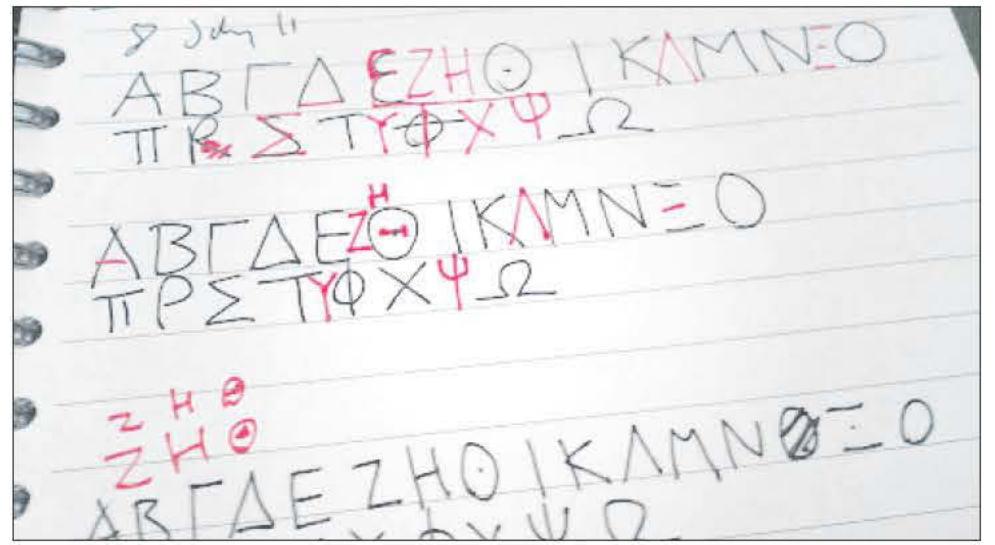 8 July 11
Α Β Γ Δ Ε Ζ Η Θ Ι Κ Λ Μ Ν Ξ Ο
Π Ρ Σ Τ Υ Φ Χ Ψ Ω
Η
Α Β Γ Δ Ε Ζ Θ Ι Κ Λ Μ Ν Ξ Ο
Π Ρ Σ Τ Υ Φ Χ Ψ Ω
Ζ Η Θ
Ζ Η Θ
Α Β Γ Δ Ε Ζ Η Θ Ι Κ Λ Μ Ν Ξ Ο
Υ Φ Χ Ψ Ω